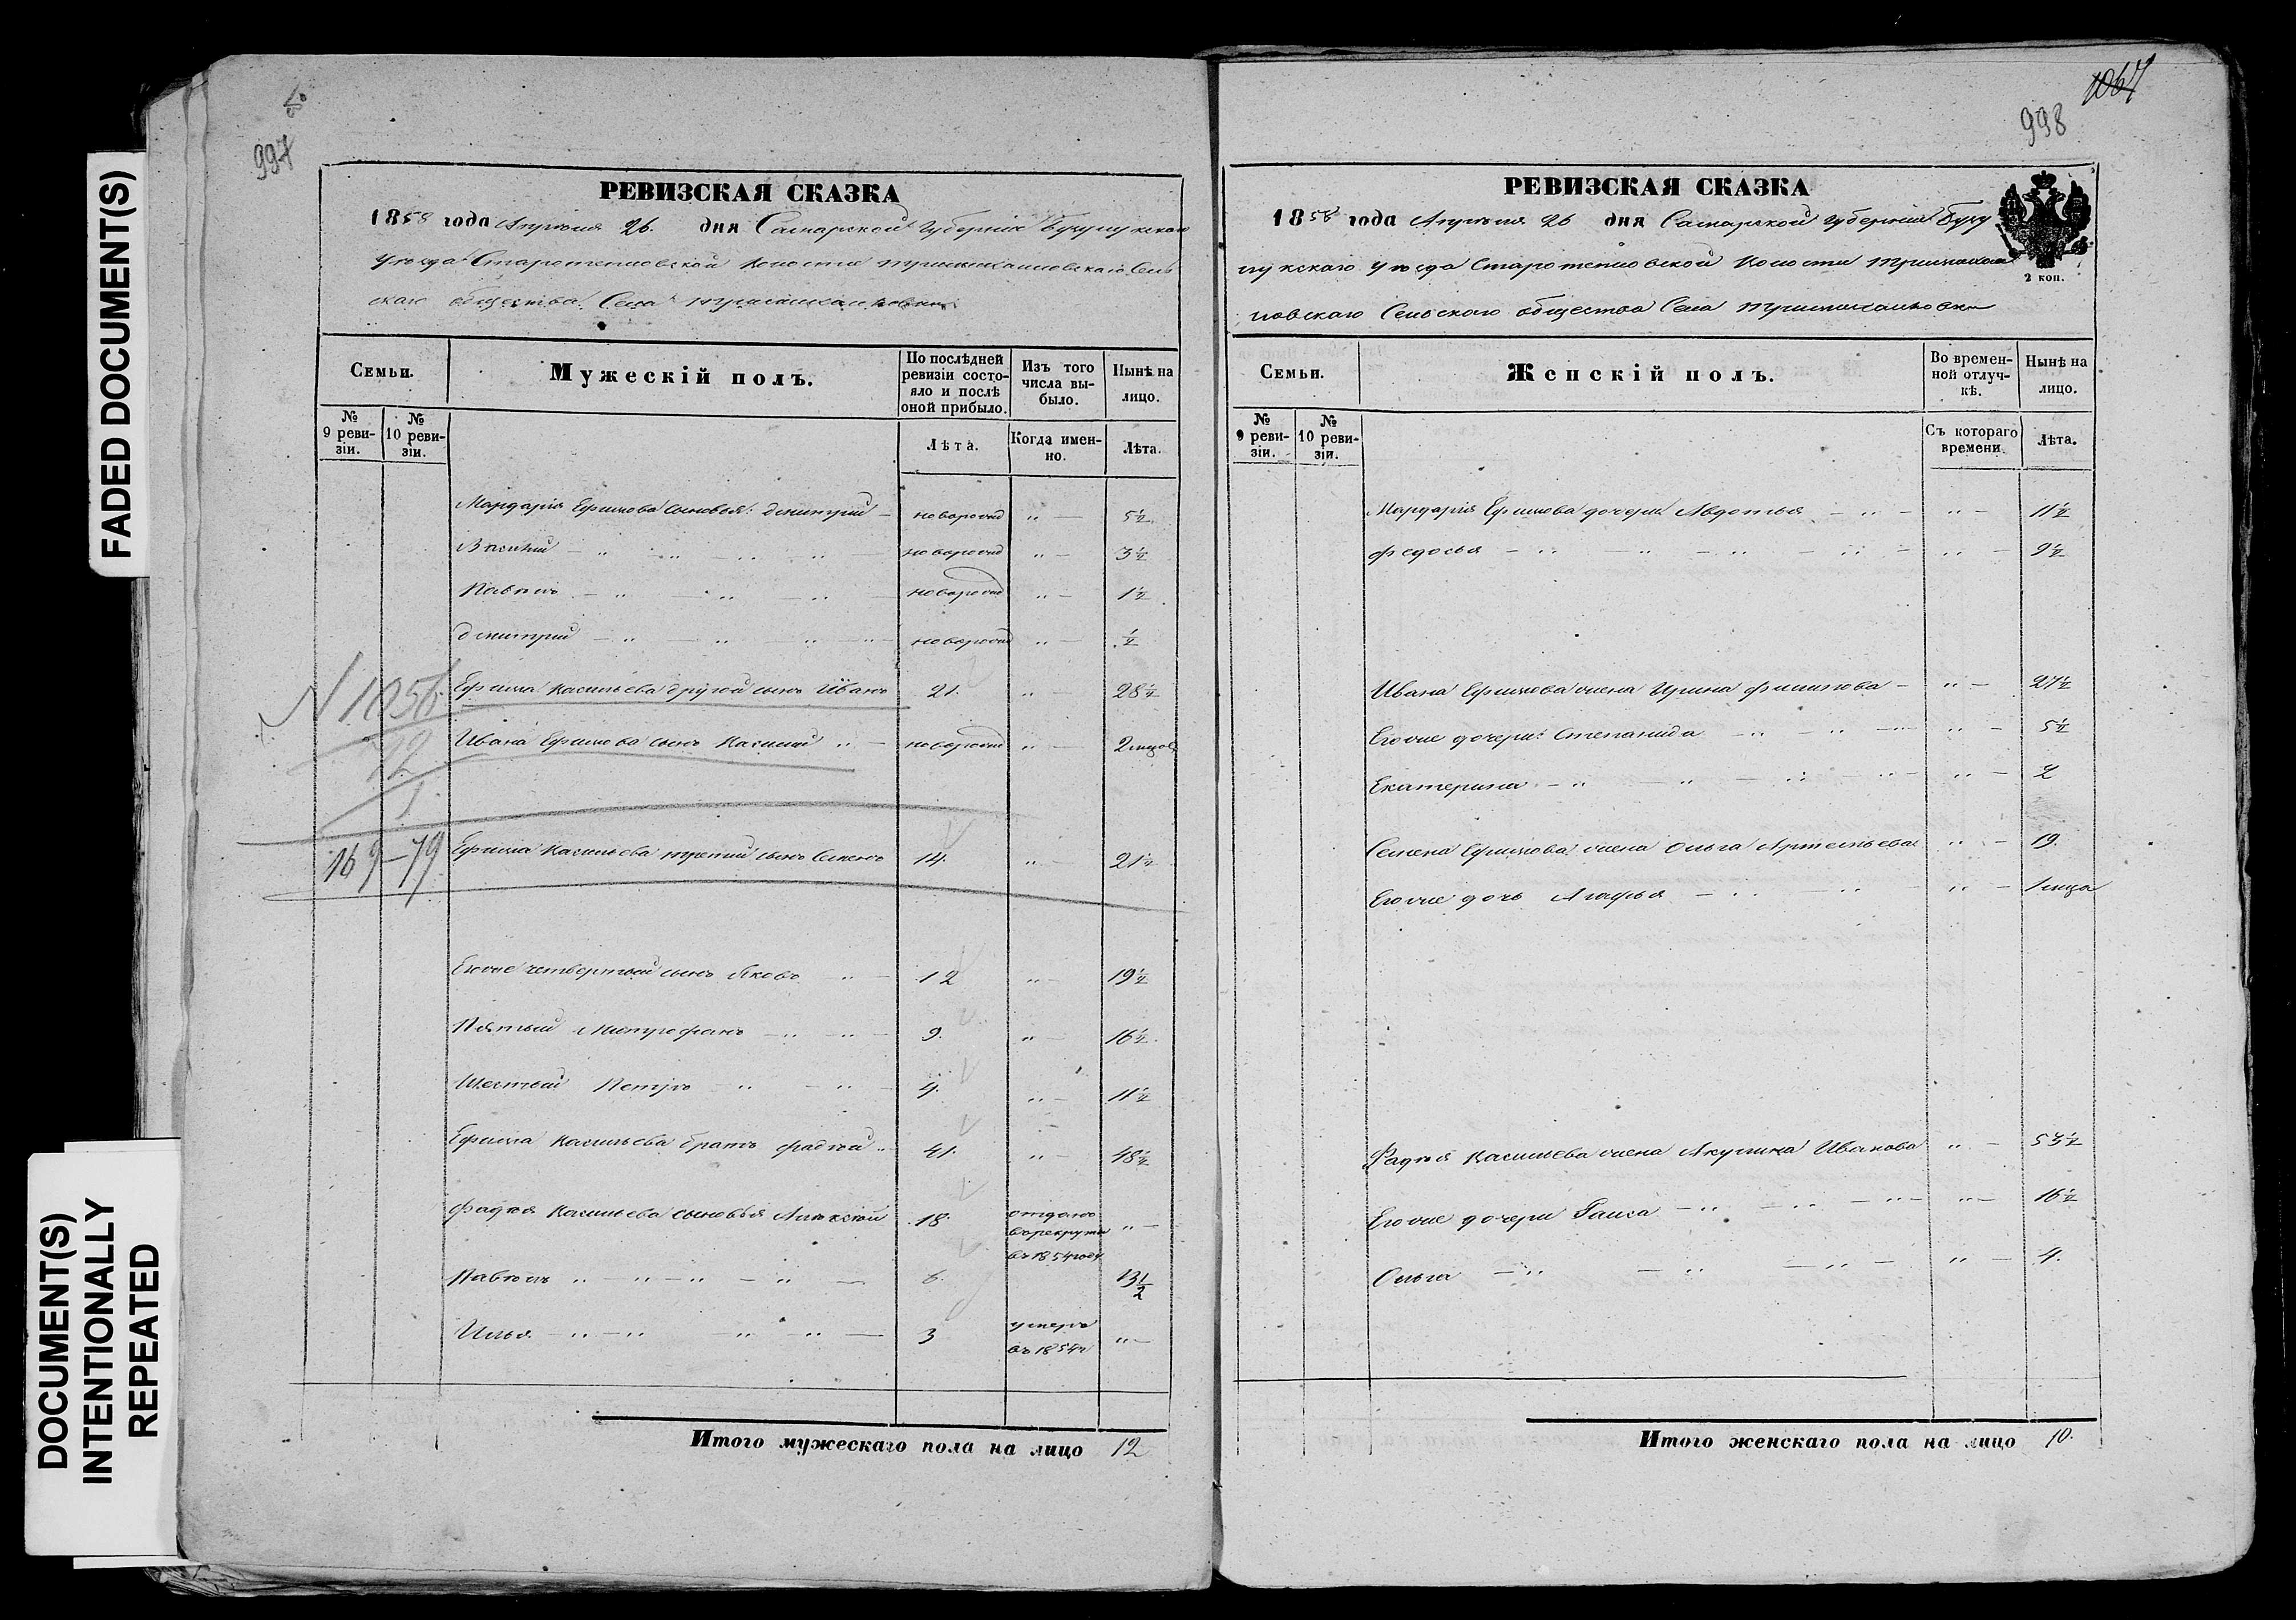 FADED DOCUMENT(S)
DOCUMENT(S)
INTENTIONALLY
REPEATED
997
РЕВИЗСКАЯ СКАЗКА
1858 года Апрѣля 26. дня Самарской Губерніи Бугурусланскаго
уѣзда Волости Сель
скаго общества Села
Семьи.
Мужескій полъ.
По послѣдней ревизіи состояло и послѣ оной прибыло.
Изъ того числа выбыло.
Нынѣ на лицо.
№ 9 ревизіи.
№ 10 ревизіи.
Лѣта.
Когда именно.
Лѣта.
Мардарія Ефимова сыновья: Дмитрій - новорожд " - 5½
новорожд " - 3½
Павелъ - " - " - " новорожд " - 1½
Дмитрій - " - " - " - новорожд " - ½
N 1056
72
1
Ефима Васильева другой сынъ Иванъ 21. " - 28½
Ивана Ефимова сынъ Василій " - новорожд " - 2 мѣсяц
169-79
Ефима Васильева третій сынъ Семенъ 14. " - 21½
Егоже четвертый сынъ Яковъ " - 12 " - 19½
Пятый Митрофанъ - " - " - 9. " - 16½
Шестый Петръ " - " - 4. " - 11½
Ефима Васильева братъ Фадѣй " 41. " - 48½
Фадѣя Васильева сыновья Алексѣй 18. отданъ
въ рекруты " -
въ 1854 году
Павелъ " - " - " - " - 6. 13½
Илья - " - " - " - " - 3 умеръ
въ 1854 г " -
Итого мужескаго пола на лицо 12
1067
998
РЕВИЗСКАЯ СКАЗКА
1858 года Апрѣля 26 дня Самарской Губерніи Бугу
уѣзда Волости
Сельскаго общества Села
2 коп.
Семьи.
Женскій полъ.
Во временной отлучкѣ.
Нынѣ на лицо.
№ 9 ревизіи.
№ 10 ревизіи.
Съ котораго времени.
Лѣта.
Мардарія Ефимова дочери Авдотья - " - " - 11½
Федосья - " - " - " - " - " - 9½
Ивана Ефимова жена Ирина Филипова - " - 27½
Егоже дочери: Степанида - " - " - " - 5½
Екатерина - " - " - " - " - " - 2
Семена Ефимова жена Ольга Артемьева " - 19.
Егоже дочь Агафья - " - " - " - 1 мѣсяц
Фадѣя Васильева жена Акулина Иванова " - 53½
Егоже дочери Раиса - " - " - " - " - 16½
Ольга - " - " - " - " - 4.
Итого женскаго пола на лицо 10.